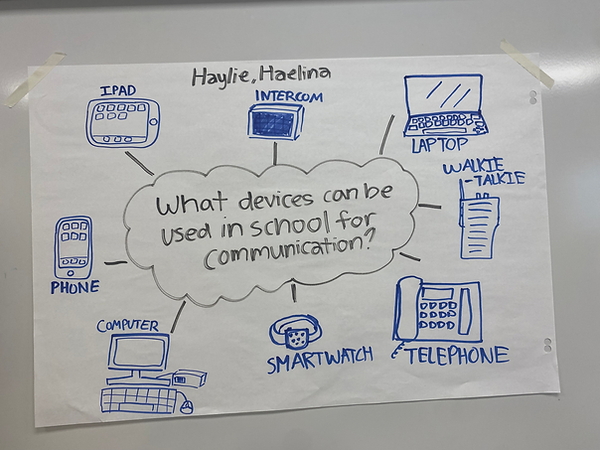 Haylie, Haelina
IPAD
INTERCOM
LAPTOP
WALKIE
-TALKIE
What devices can be
used in school for
communication?
PHONE
COMPUTER
SMARTWATCH
TELEPHONE